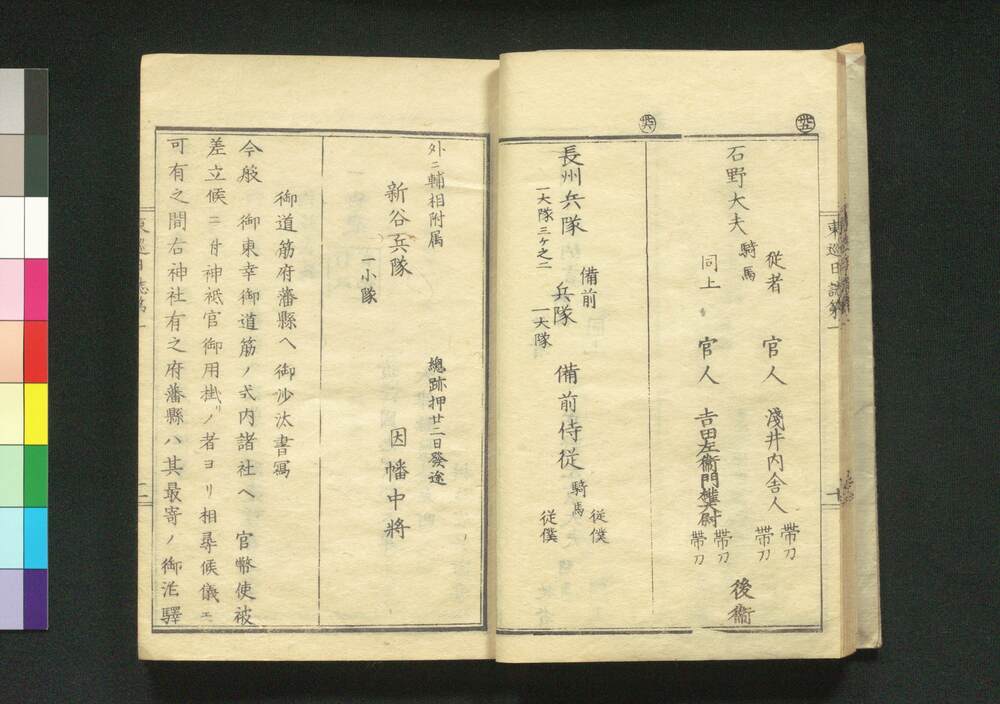 東巡日誌第一
十
石野大夫
騎馬
従者 官人 淺井内舎人 帶刀 帶刀
同上 官人 吉田左衞門權大尉 帶刀 帶刀
後衞
長州兵隊 一大隊三ケ之二
備前兵隊 一大隊
備前侍従 騎馬 従僕 従僕
外ニ輔相附属
新谷兵隊 一小隊
總跡押廿二日發途
因幡中將
御道筋府藩縣ヘ御沙汰書寫
今般 御東幸御道筋ノ式内諸社ヘ 官幣使被
差立候ニ付神祇官御用掛リノ者ヨリ相尋候儀モ
可有之間右神社有之府藩縣ハ其最寄ノ御泊驛
東巡日誌第一